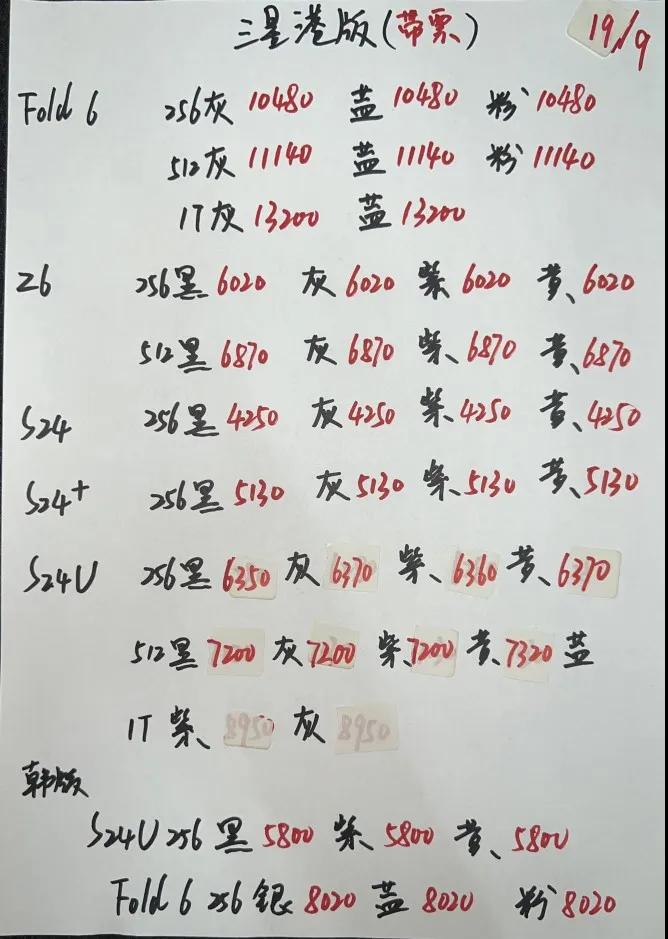 三星港版(带票) 19/9
Fold 6 256灰 10480 蓝 10480 粉 10480
512灰 11140 蓝 11140 粉 11140
1T灰 13200 蓝 13200
Z6 256黑 6020 灰 6020 紫 6020 黄 6020
512黑 6870 灰 6870 紫 6870 黄 6870
S24 256黑 4250 灰 4250 紫 4250 黄 4250
S24+ 256黑 5130 灰 5130 紫 5130 黄 5130
S24U 256黑 6350 灰 6370 紫 6360 黄 6370
512黑 7200 灰 7200 紫 7200 黄 7320 蓝
1T 紫 8950 灰 8950
韩版
S24U 256 黑 5800 紫 5800 黄 5800
Fold 6 256 银 8020 蓝 8020 粉 8020